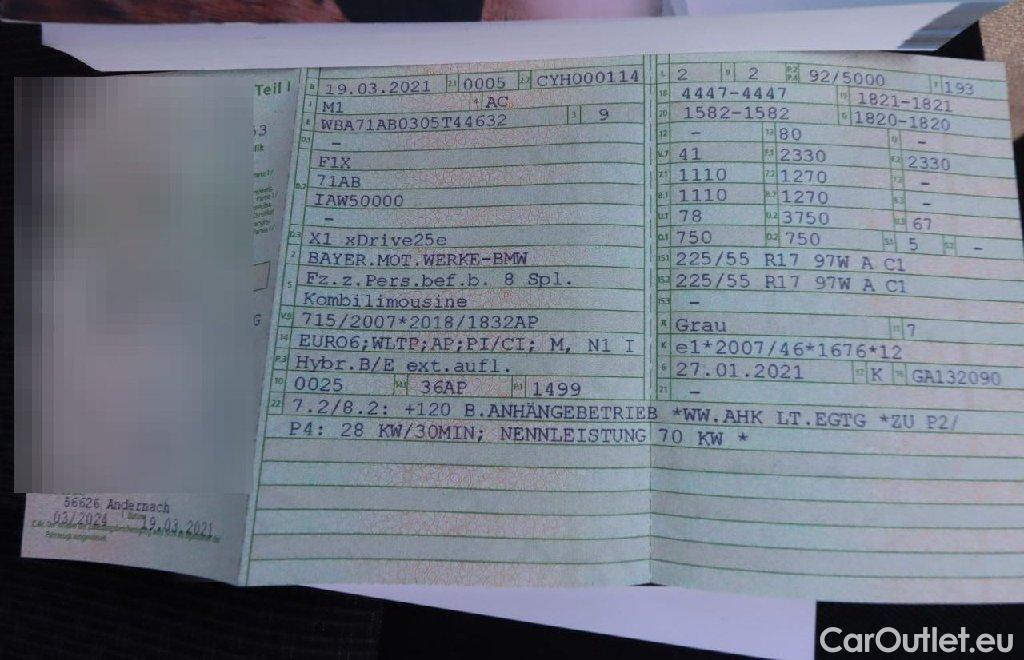 Teil I
B 19.03.2021 2.1 0005 2.2 CYH000114
J M1 4 AC
E WBA71AB0305T44632 3 9
D.1 –
F1X
D.2 71AB
IAW50000
–
D.3 X1 xDrive25e
2 BAYER.MOT.WERKE-BMW
5 Fz.z.Pers.bef.b. 8 Spl.
Kombilimousine
V.9 715/2007*2018/1832AP
14 EURO6;WLTP;AP;PI/CI; M, N1 I
P.3 Hybr.B/E ext.aufl.
10 0025 14.1 36AP P.1 1499
22 7.2/8.2: +120 B.ANHÄNGEBETRIEB *WW.AHK LT.EGTG *ZU P2/
P4: 28 KW/30MIN; NENNLEISTUNG 70 KW *
L 2 9 2 P.2 P.4 92/5000 T 193
18 4447-4447 19 1821-1821
20 1582-1582 G 1820-1820
12 – 13 80 Q –
V.7 41 F.1 2330 F.2 2330
7.1 1110 7.2 1270 7.3 –
8.1 1110 8.2 1270 8.3 –
U.1 78 U.2 3750 U.3 67
O.1 750 O.2 750 S.1 5 S.2 –
15.1 225/55 R17 97W A C1
15.2 225/55 R17 97W A C1
15.3 –
R Grau 11 7
K e1*2007/46*1676*12
6 27.01.2021 17 K 16 GA132090
21 –
56626 Andernach
03/2024 19.03.2021
CarOutlet.eu